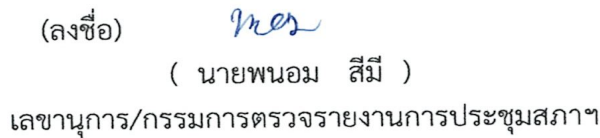 (ลงชื่อ)
( นายพนอม สีมี )
เลขานุการ/กรรมการตรวจรายงานการประชุมสภาฯ